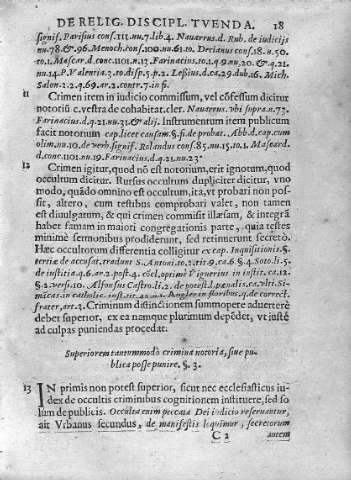 DE RELIG. DISCIPL. TVENDA. 18
signif. Parisius conf. 111. nu. 7. lib. 4. Nauarrus. d. Rub. de iudicijs
nu. 78. & 96. Menoch. conf. 100. nu. 61. 10. Decianus conf. 18. n. 50.
to. 1. Mascar. d. conc. 1101. n. 17. Farinacius. to. 1. q. 9. nu. 20. & q. 21.
nu. 14. P. Valentia. 3. to. disp. 5. p. 2. Leßius. d. ca. 29. dub. 16. Mich.
Salon. 2. 2. q. 69. ar. 2. contr. 7. in fi.
11 Crimen item in iudicio commissum, vel cõfessum dicitur
notoriũ c. vestra de cohabitat. cler. Nauarrus. vbi supra. n. 77.
Farinacius. d. q. 21. nu. 31. & alij. Instrumentum item publicum
facit notorium cap. licet causam. §. fi. de probat. Abb. d. cap. cum
olim. nu. 10. de verb. signif. Rolandus conf. 85. nu. 15. to. 1. Mascard.
d. conc. 1101. nu. 19. Farinacius. d. q. 21. nu. 23.
12 Crimen igitur, quod nõ est notorium, erit ignotum, quod
occultum dicitur. Rursus occultum dupliciter dicitur, vno
modo, quãdo omnino est occultum, ita, vt probari non pos-
sit, altero, cum testibus comprobari valet, non tamen
est diuulgatum, & qui crimen commisit illæsam, & integrã
habet famam in maiori congregationis parte, quia testes
minimè sermonibus prodiderunt, sed retinuerunt secretò.
Hæc occultorum differentia colligitur ex cap. Inquisitionis. §.
tertiæ de accusat. tradunt S. Antoni. to. 2. tit. 9. ca. 6. §. 4. Soto. li. 5.
de iustitia. q. 6. ar. 2. post. 4. cõcl. optimè Viguerius in instit. ca. 12.
§. 2. versi. 10. Alfonsus Castro. li. 2. de potest. l. pœnalis. ca. vlti. Si-
mãcas in catholic. instit. tit. in floribus. q. de correct.
frater. art. 2. Criminum distinctionem summopere aduertere
debet superior, ex ea namque plurimum depẽdet, vt iustè
ad culpas puniendas procedat.
Superiorem tantummodò crimina notoria, siue pu-
blica posse punire. §. 3.
13 IN primis non potest superior, sicut nec ecclesiasticus iu-
dex de occultis criminibus cognitionem instituere, sed so
lum de publicis. Occulta enim peccata Dei iudicio reseruantur,
ait Vrbanus secundus, de manifestis loquimur, secretorum
C 2 autem